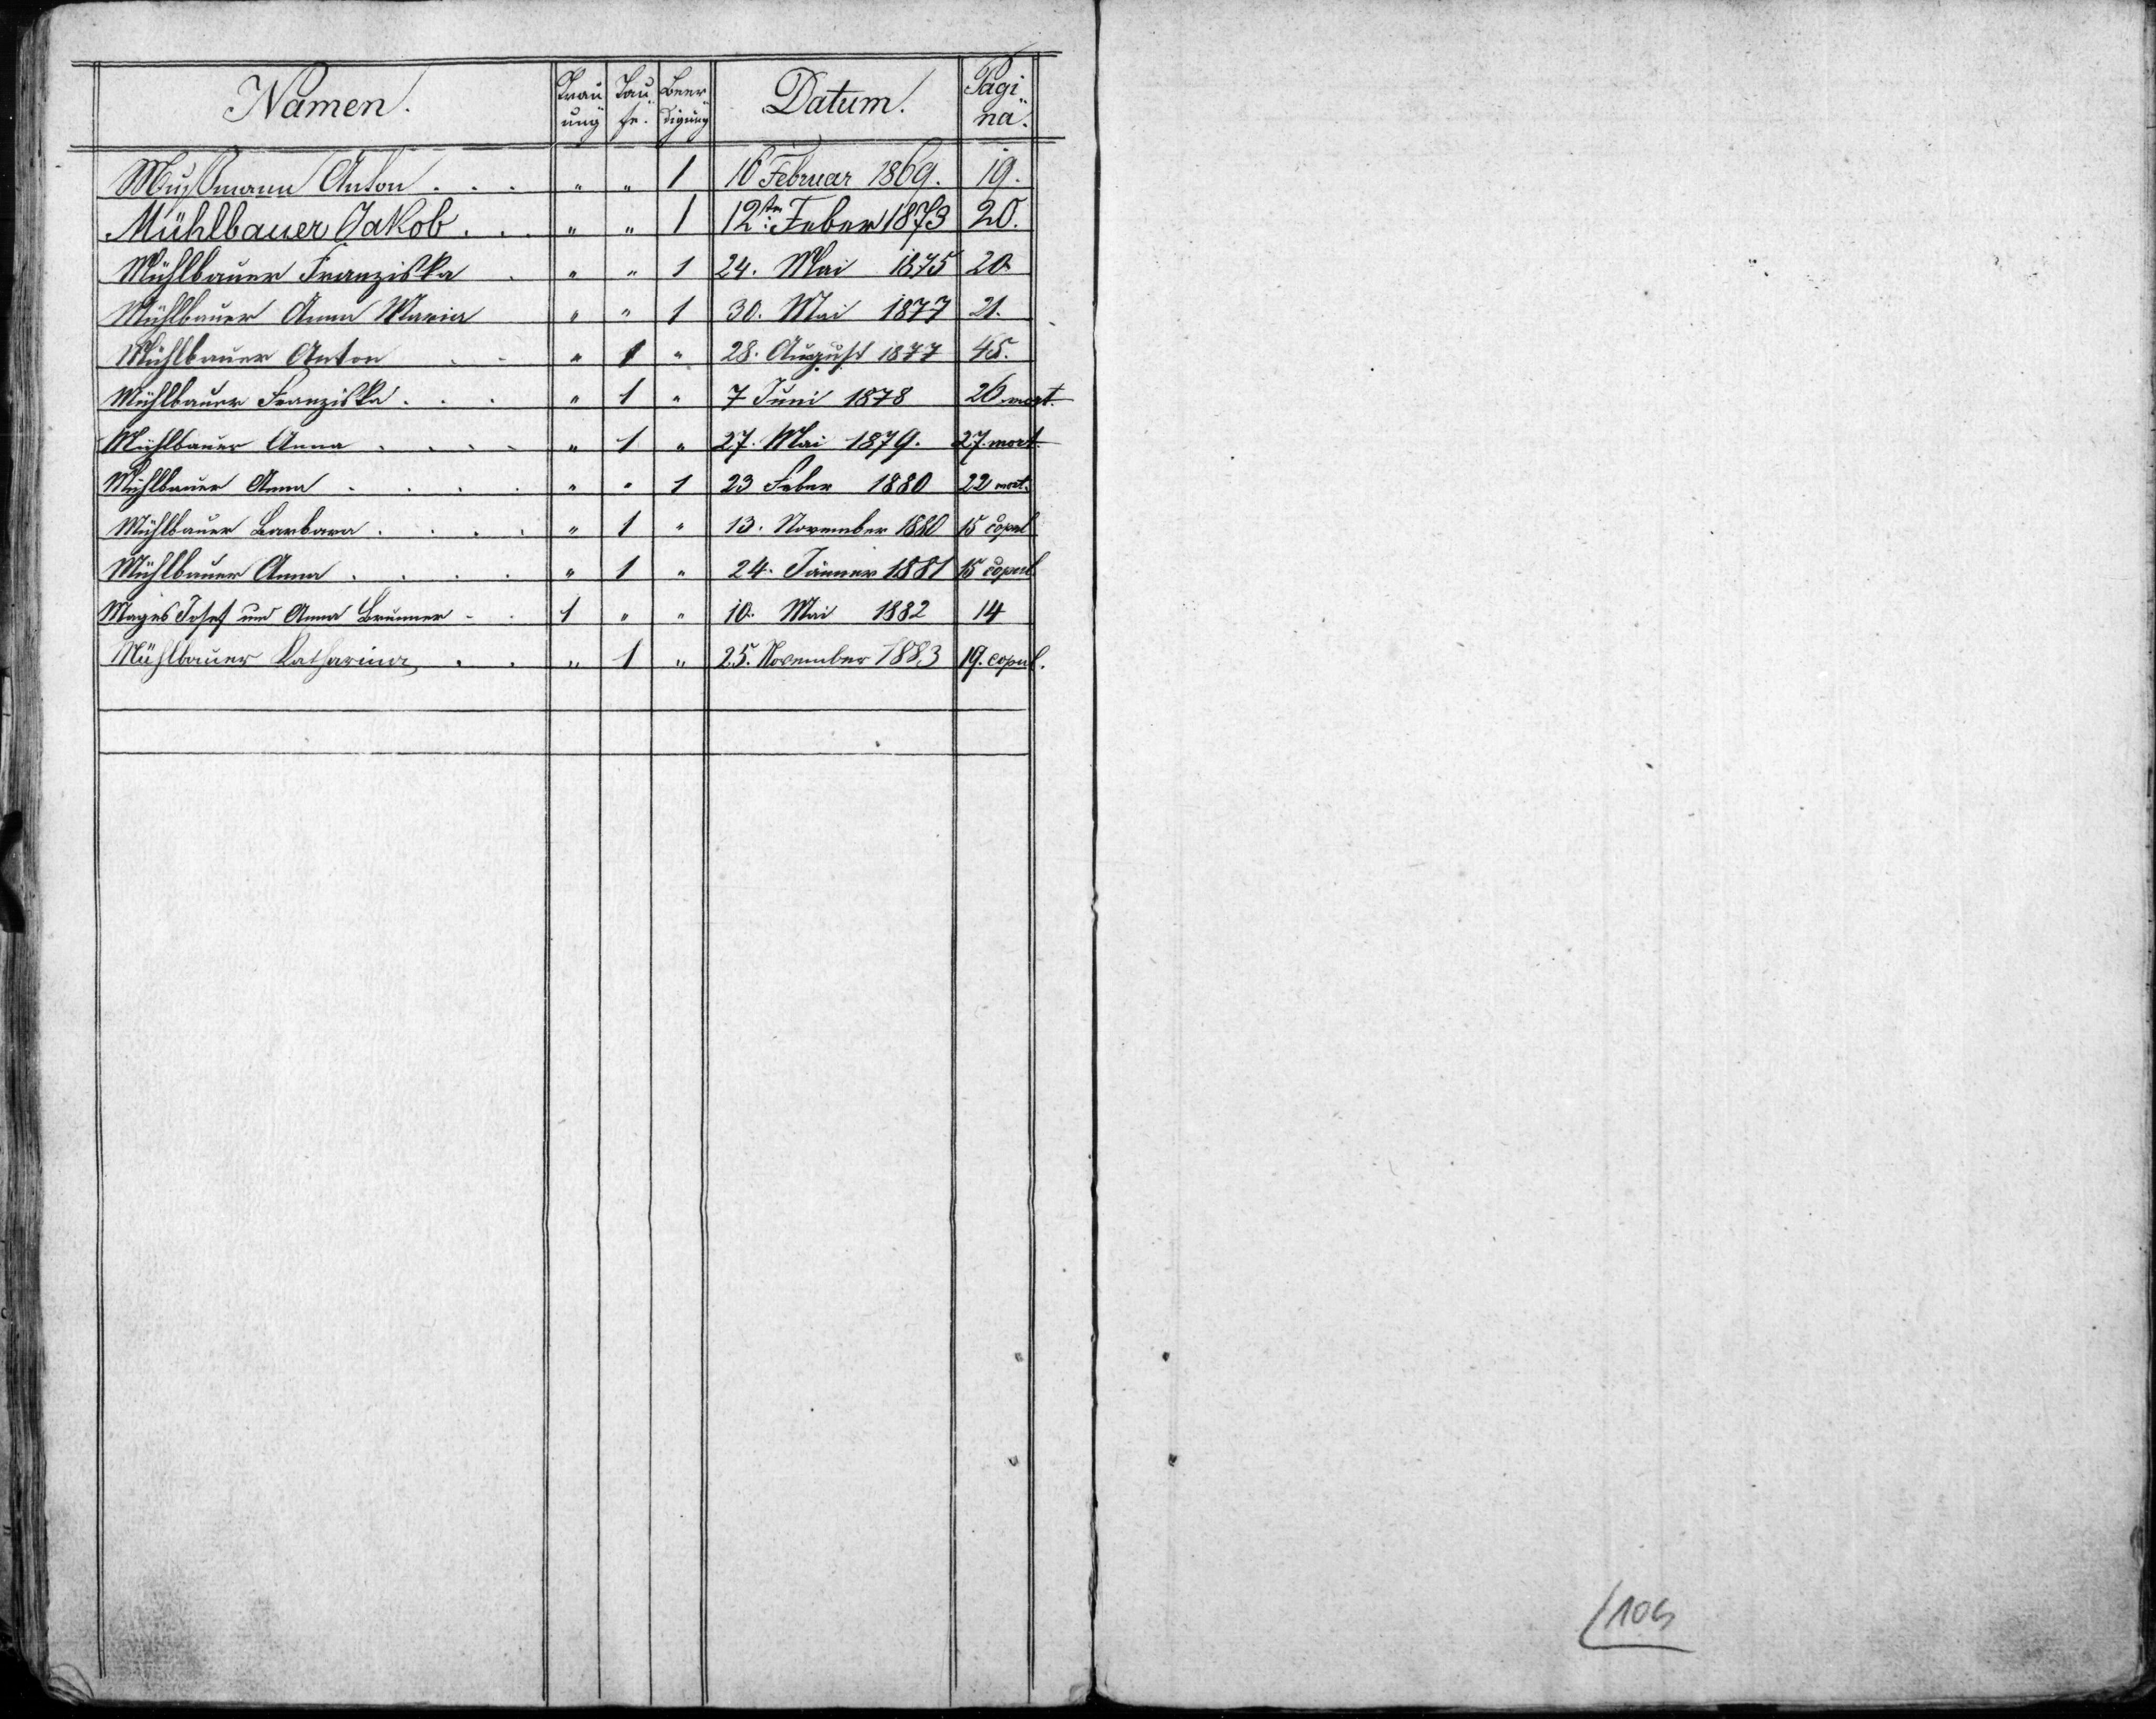 Namen. Trau ung Tau fe. Beer digung Datum. Pagi na.
Mußmann Anton . . . " " 1 16 Februar 1869. 19.
Mühlbauer Jakob . . . " " 1 12ten Feber 1873 20.
Mühlbauer Franziska . " " 1 24. Mai 1875 20
Mühlbauer Anna Maria " " 1 30. Mai 1877 21.
Mühlbauer Anton . . " 1 " 28. August 1877 45.
Mühlbauer Franziska . . . " 1 " 7 Juni 1878 26 mort.
Mühlbauer Anna . . . . " 1 " 27. Mai 1879. 27. mort.
Mühlbauer Anna . . . . " " 1 23 Feber 1880 22 mort.
Mühlbauer Barbara . . . . " 1 " 13. November 1880 15 copul
Mühlbauer Anna . . . . " 1 " 24. Jänner 1881 15 copul
Mages Josef und Anna Brunner - . 1 " " 10. Mai 1882 14
Mühlbauer Katharina . . " 1 " 25. November 1883 19. copul.